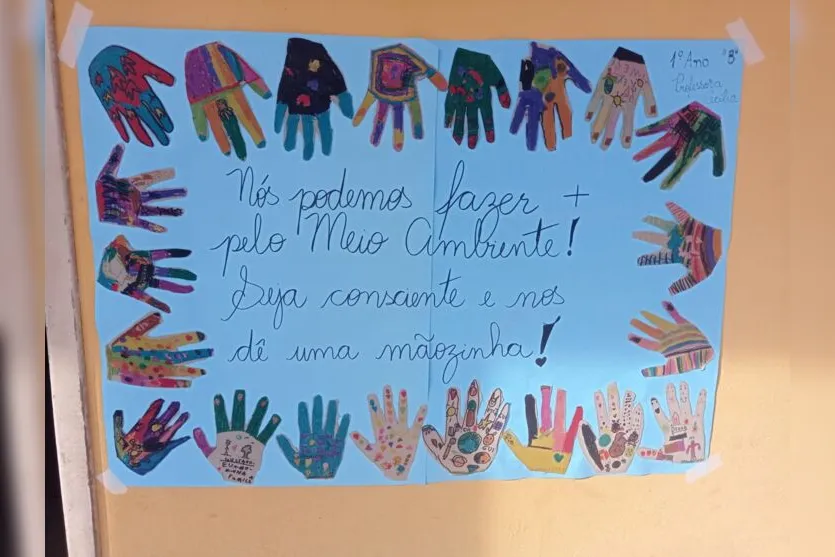 1º Ano "B"
Professora
Nós podemos fazer +
pelo Meio Ambiente!
Seja consciente e nos
dê uma mãozinha!